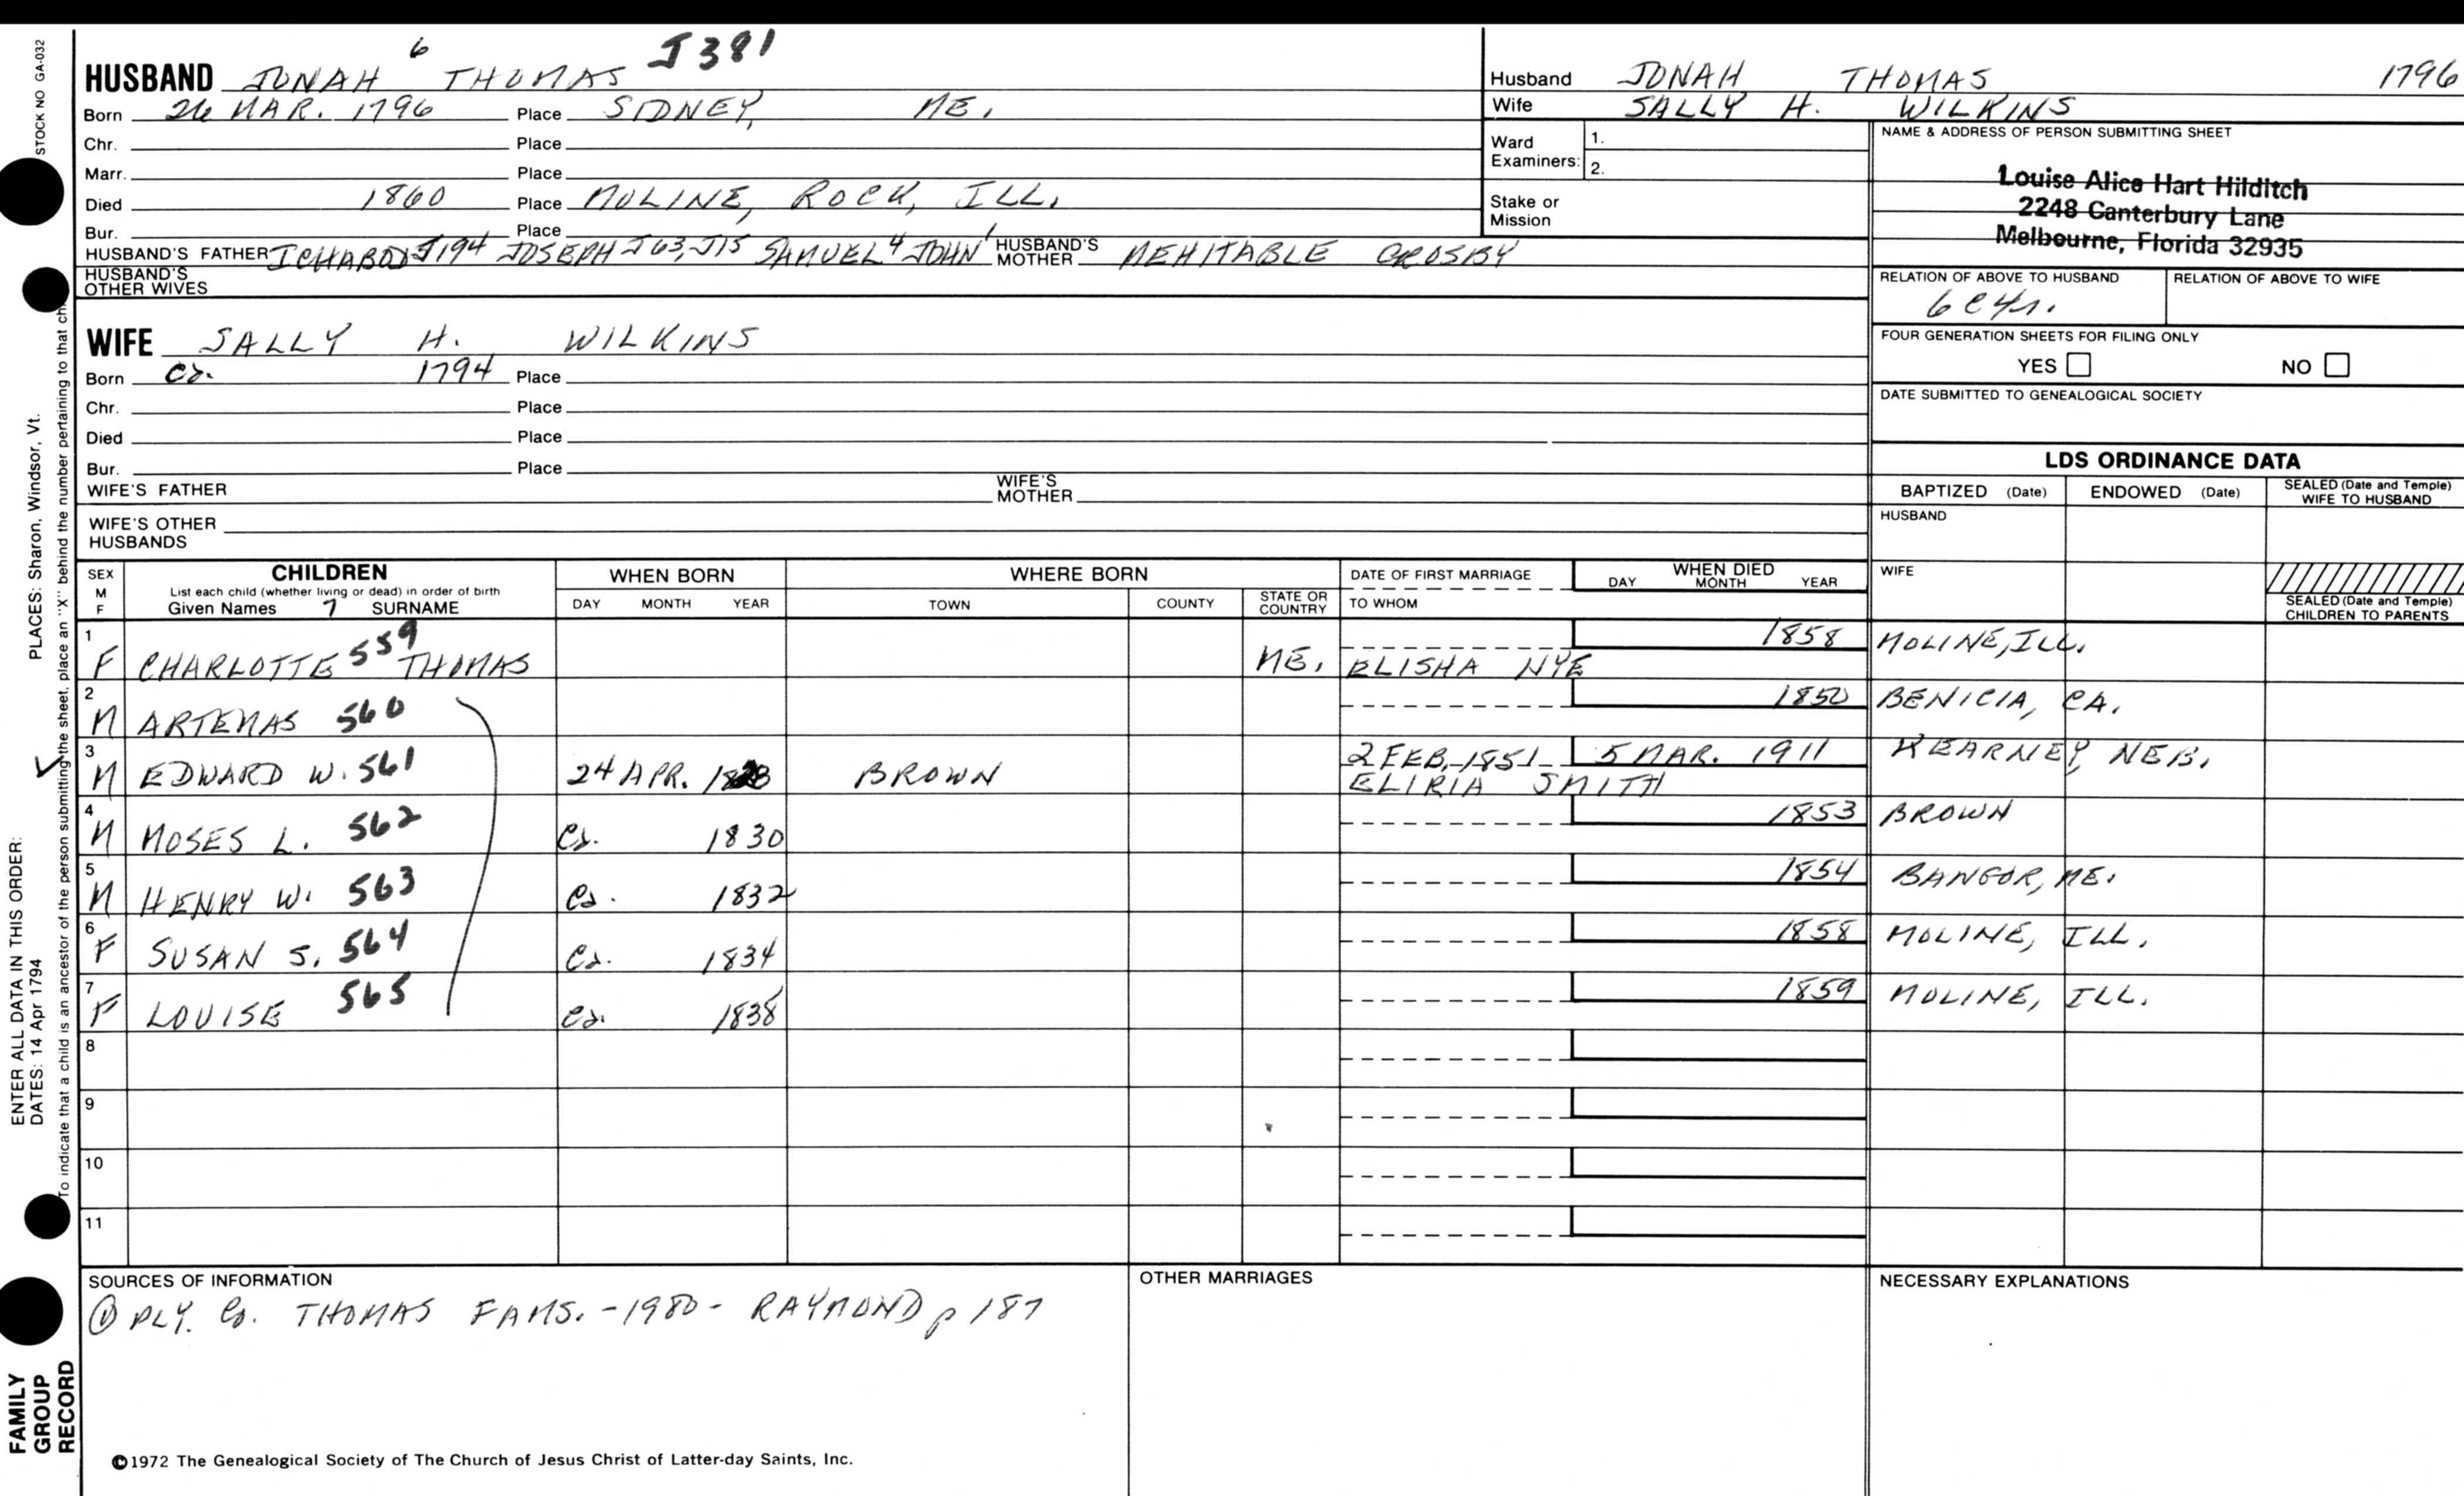 STOCK NO GA-032
HUSBAND JONAH 6 THOMAS J381
Born 26 MAR. 1796 Place SIDNEY, ME.
Chr. Place
Marr. Place
Died 1860 Place MOLINE, ROCK, ILL.
Bur. Place
HUSBAND'S FATHER ICHABOD J194 JOSEPH J63, J15 SAMUEL 4 JOHN 1 HUSBAND'S MOTHER MEHITABLE CROSBY
HUSBAND'S OTHER WIVES
WIFE SALLY H. WILKINS
Born Ca. 1794 Place
Chr. Place
Died Place
Bur. Place
WIFE'S FATHER WIFE'S MOTHER
WIFE'S OTHER HUSBANDS
Husband JONAH THOMAS 1796
Wife SALLY H. WILKINS
Ward Examiners: 1.
2.
Stake or Mission
NAME & ADDRESS OF PERSON SUBMITTING SHEET
Louise Alice Hart Hilditch
2248 Canterbury Lane
Melbourne, Florida 32935
RELATION OF ABOVE TO HUSBAND RELATION OF ABOVE TO WIFE
6C4r.
FOUR GENERATION SHEETS FOR FILING ONLY
YES NO
DATE SUBMITTED TO GENEALOGICAL SOCIETY
LDS ORDINANCE DATA
BAPTIZED (Date) ENDOWED (Date) SEALED (Date and Temple) WIFE TO HUSBAND
HUSBAND
WIFE
SEALED (Date and Temple) CHILDREN TO PARENTS
SEX M F CHILDREN WHEN BORN WHERE BORN DATE OF FIRST MARRIAGE WHEN DIED
List each child (whether living or dead) in order of birth
Given Names 7 SURNAME DAY MONTH YEAR TOWN COUNTY STATE OR COUNTRY TO WHOM DAY MONTH YEAR
1 F CHARLOTTE 559 THOMAS ME. ELISHA NYE 1858 MOLINE, ILL.
2 M ARTEMAS 560 1850 BENICIA, CA.
3 M EDWARD W. 561 24 APR. BROWN 2 FEB, 1851 ELIRIA SMITH 5 MAR. 1911 KEARNEY, NEB.
4 M MOSES L. 562 Ca. 1830 1853 BROWN
5 M HENRY W. 563 Ca. 1832 1854 BANGOR, ME.
6 F SUSAN S. 564 Ca. 1834 1858 MOLINE, ILL.
7 F LOUISE 565 Ca. 1838 1859 MOLINE, ILL.
8
9
10
11
SOURCES OF INFORMATION
① PLY. Co. THOMAS FAMS. -1980- RAYMOND p 187
OTHER MARRIAGES
NECESSARY EXPLANATIONS
©1972 The Genealogical Society of The Church of Jesus Christ of Latter-day Saints, Inc.
ENTER ALL DATA IN THIS ORDER:
DATES: 14 Apr 1794
PLACES: Sharon, Windsor, Vt.
To indicate that a child is an ancestor of the person submitting the sheet, place an "X" behind the number pertaining to that
FAMILY
GROUP
RECORD